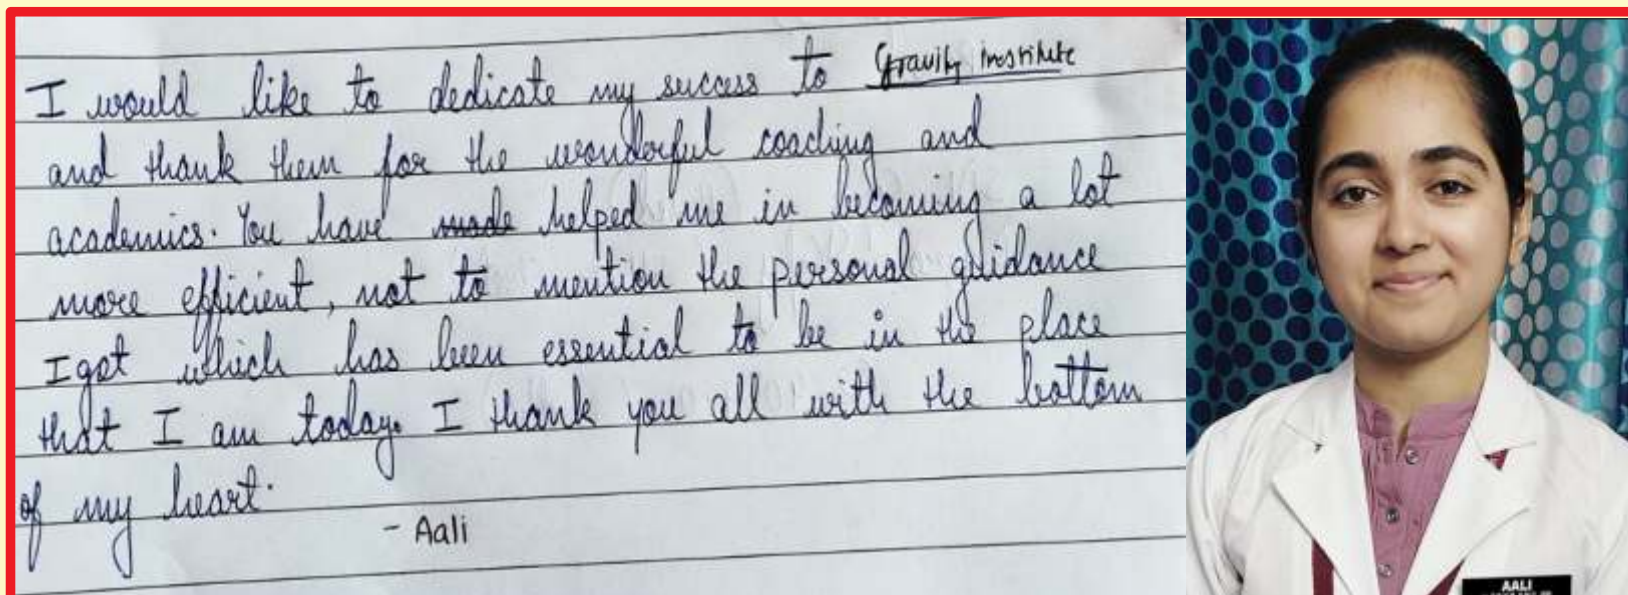 I would like to dedicate my success to Gravity institute
and thank them for the wonderful coaching and
academics. You have made helped me in becoming a lot
more efficient, not to mention the personal guidance
I got which has been essential to be in the place
that I am today. I thank you all with the bottom
of my heart.
- Aali
AALI